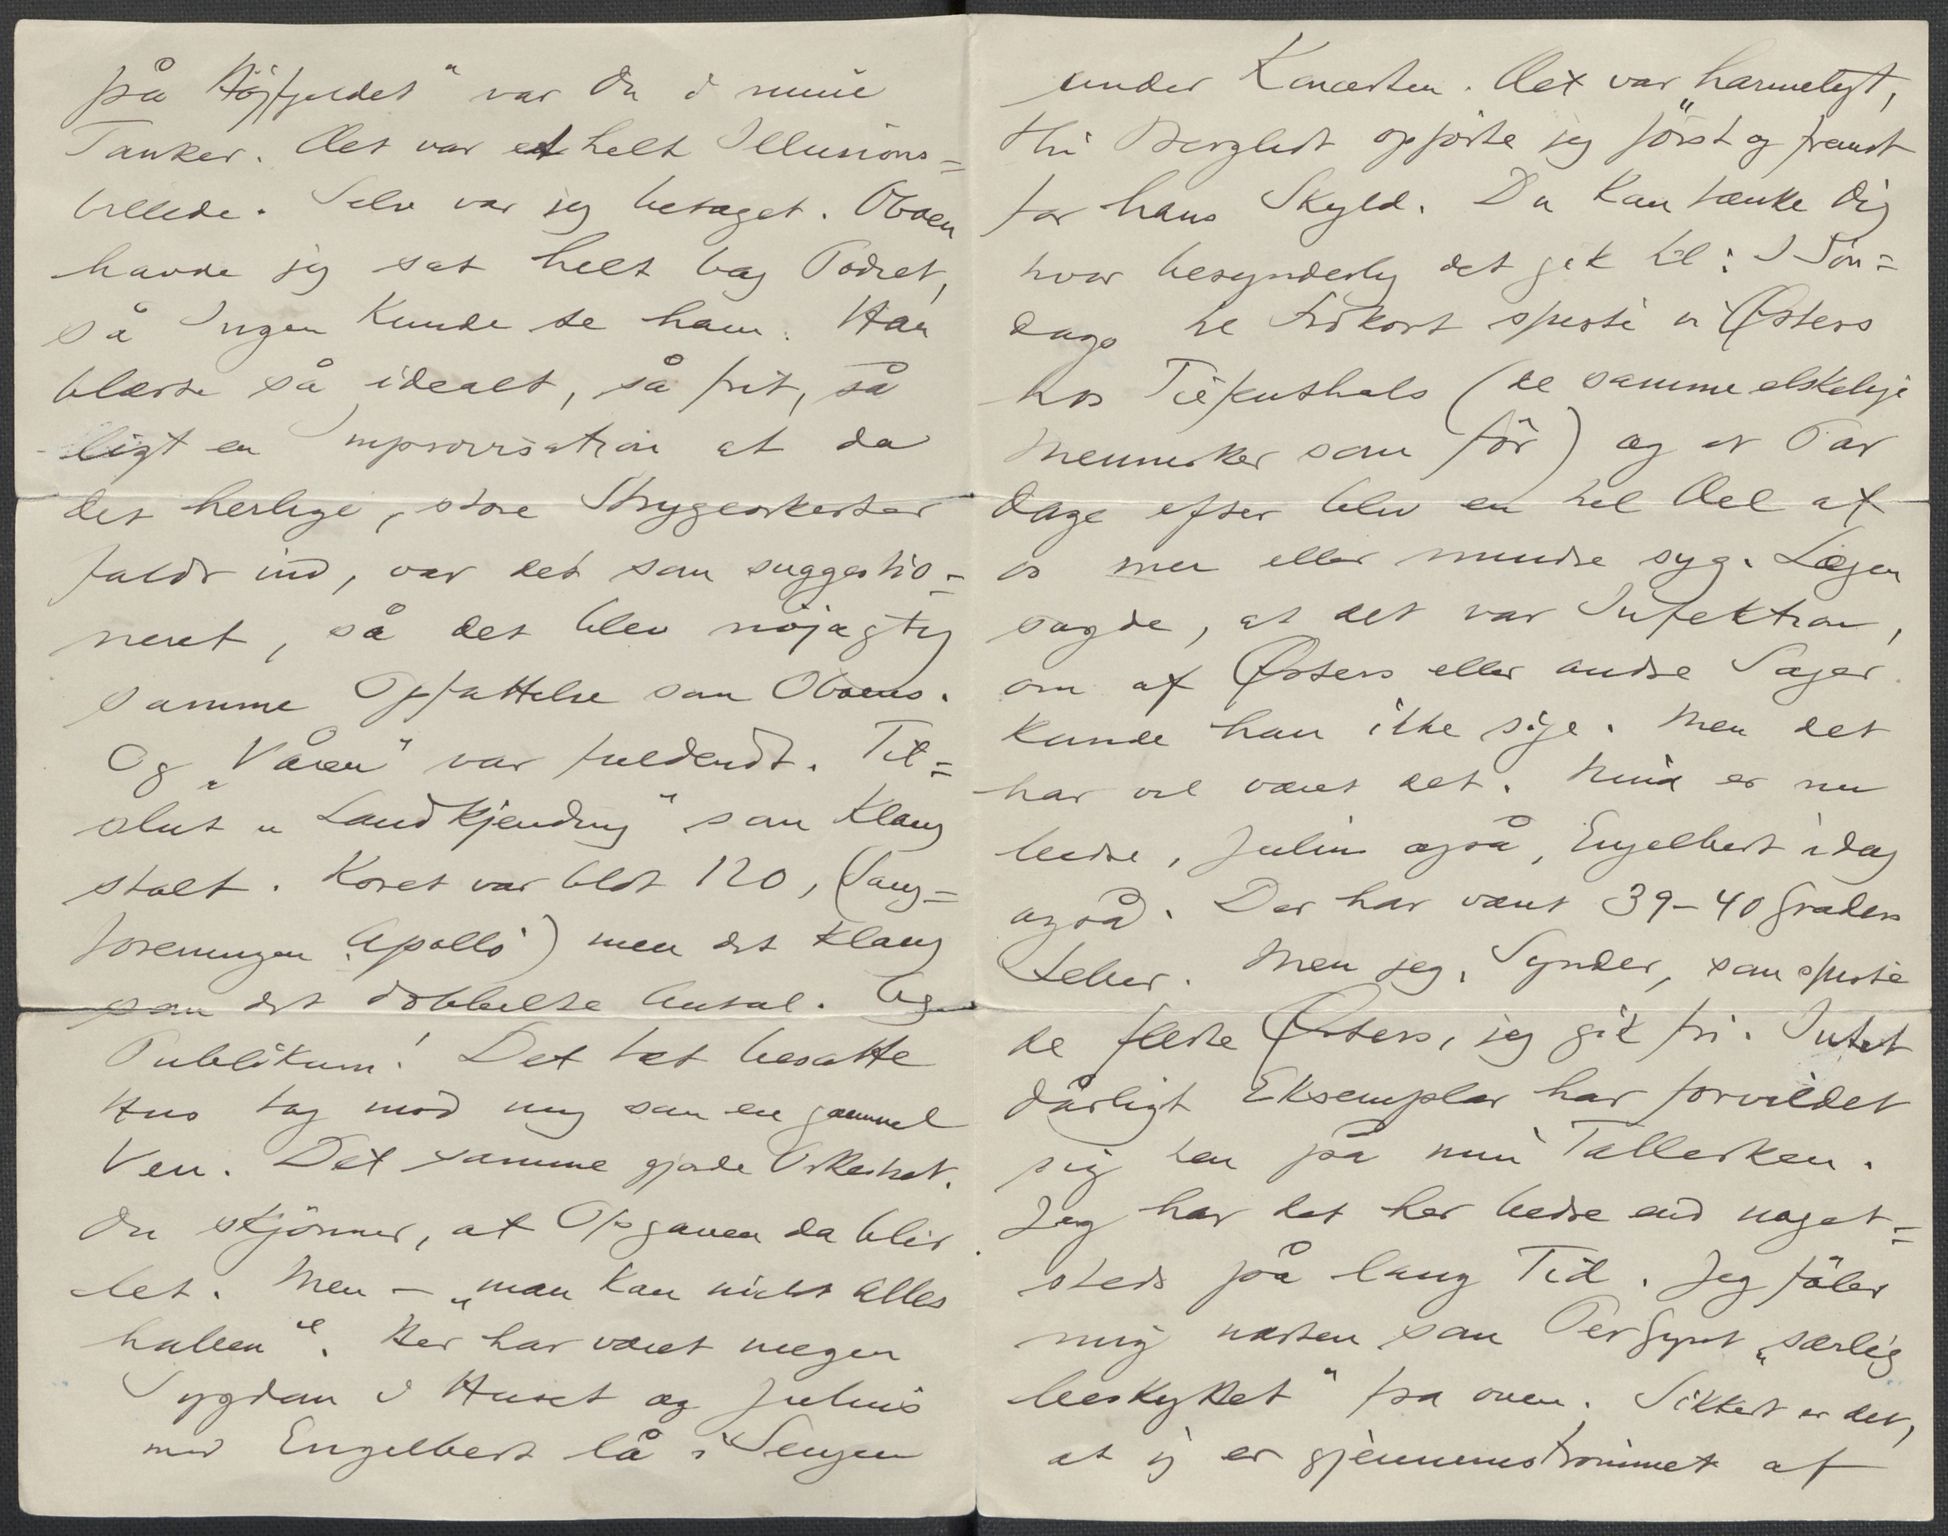 på Højfjeldet" var Du i mine
Tanker. Det var et helt Illusions=
billede. Selv var jeg betaget. Oboen
havde jeg sat helt bag Podiet,
så Ingen kunde se ham. Han
blæste så idealt, så frit, så
ligt en Improvisation at da
det herlige, store Strygeorkester
faldt ind, var det som suggestio=
neret, så det blev nøjagtig
samme Opfattelse som Oboens.
Og „Våren" var fuldendt. Til=
slut „Landkjending" som klang
stolt. Koret var blot 120, (Sang=
foreningen Apollo) men det klang
som det dobbelte Antal. Og
Publikum! Det tæt besatte
Hus tog mod mig som en gammel
Ven. Det samme gjorde Orkestret.
Du skjønner, at Opgaven da blir
let. Men – „man kan nicht alles
haben". Her har været megen
Sygdom i Huset og Julius
med Engelbert lå i Sengen
under Koncerten. Det var harmeligt,
thi Bergliot opførte jeg først og fremst
for hans Skyld. Du kan tænke Dig
hvor besynderlig det gik til: I Søn=
dags til Frokost spiste vi Østers
hos (de samme elskelige
Mennesker som før) og et Par
Dage efter blev en hel Del af
os mer eller mindre syg. Lægen
sagde, at det var Infektion,
om af Østers eller andre Sager
kunde han ikke sige. Men det
har vel været det. Nina er nu
bedre, Julius også, Engelbert idag
også. Der har været 39–40 Graders
Feber. Men jeg, Synder, som spiste
de fleste Østers, jeg gik fri. Intet
dårligt Eksemplar har forvildet
sig hen på min Tallerken.
Jeg har det her bedre end noget=
steds på lang Tid. Jeg føler
mig næsten som Per Gynt „særlig
beskyttet" fra oven. Sikkert er det,
at jeg er gjennemstrømmet af